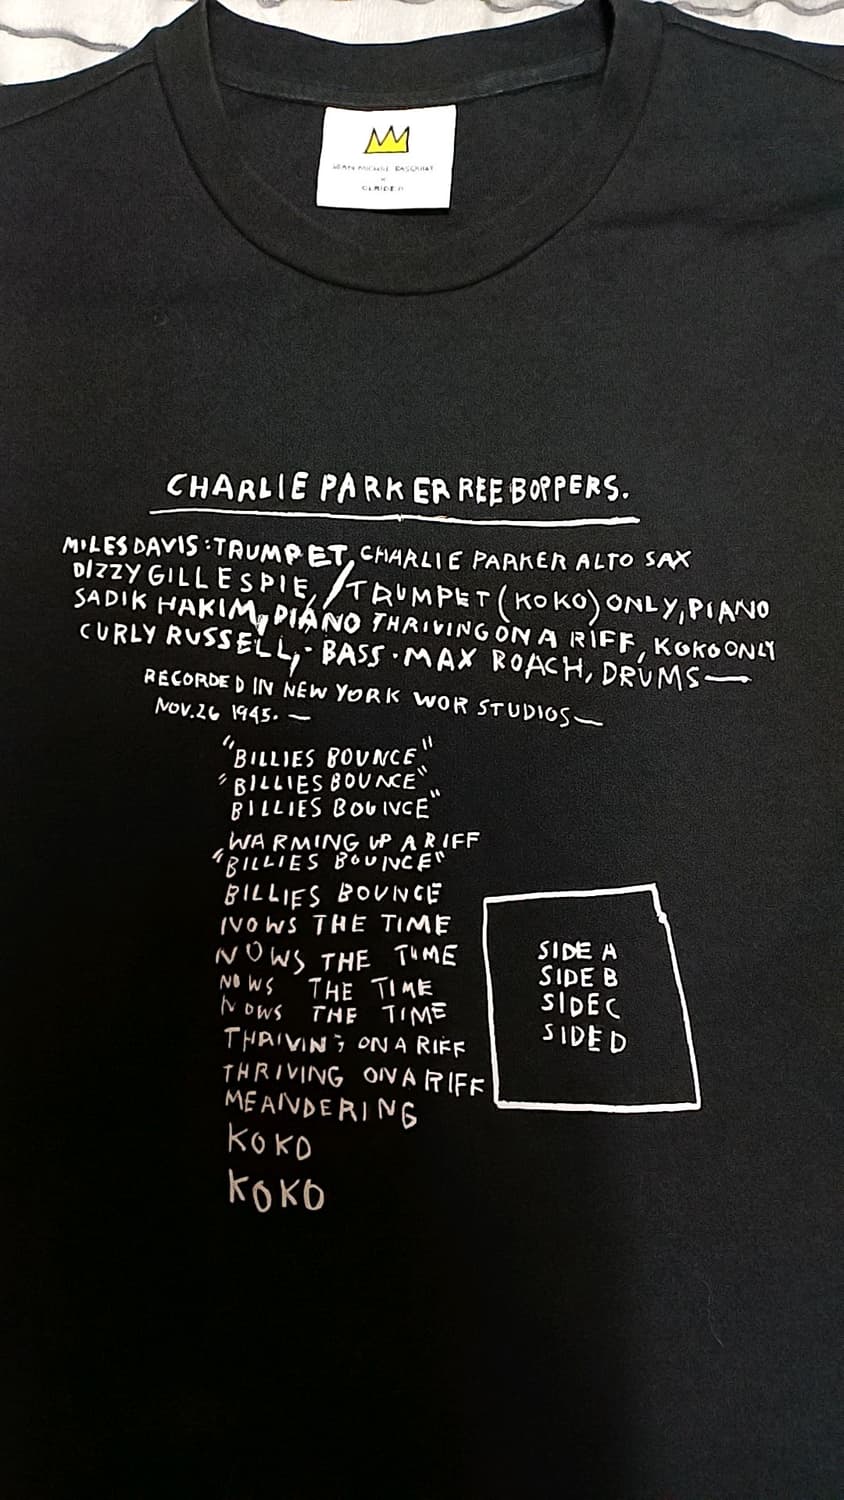 JEAN MICHEL BASQUIAT
X
CHARLIE PARKER REE BOPPERS.
MILES DAVIS : TRUMPET, CHARLIE PARKER ALTO SAX
DIZZY GILLESPIE, / TRUMPET (KOKO) ONLY, PIANO
SADIK HAKIM, PIANO THRIVING ON A RIFF, KOKO ONLY
CURLY RUSSELL, - BASS . MAX ROACH, DRUMS —
RECORDED IN NEW YORK WOR STUDIOS —
NOV. 26 1945. —
"BILLIES BOUNCE"
"BILLIES BOUNCE"
BILLIES BOUNCE"
WARMING UP A RIFF
"BILLIES BOUNCE"
BILLIES BOUNCE
NOWS THE TIME
NOWS THE TIME
NOWS THE TIME
NOWS THE TIME
THRIVING ON A RIFF
THRIVING ON A RIFF
MEANDERING
KOKO
KOKO
SIDE A
SIDE B
SIDE C
SIDE D